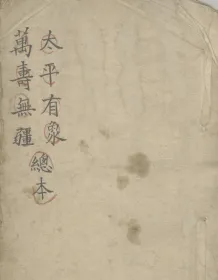 太平有象總本
萬壽無疆